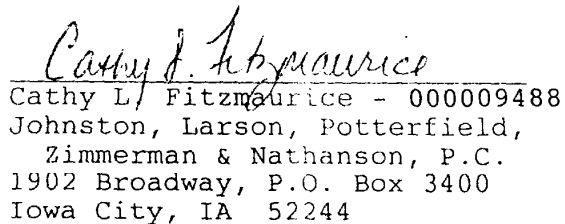 Cathy L. Fitzmaurice
Cathy L. Fitzmaurice - 000009488
Johnston, Larson, Potterfield,
Zimmerman & Nathanson, P.C.
1902 Broadway, P.O. Box 3400
Iowa City, IA 52244